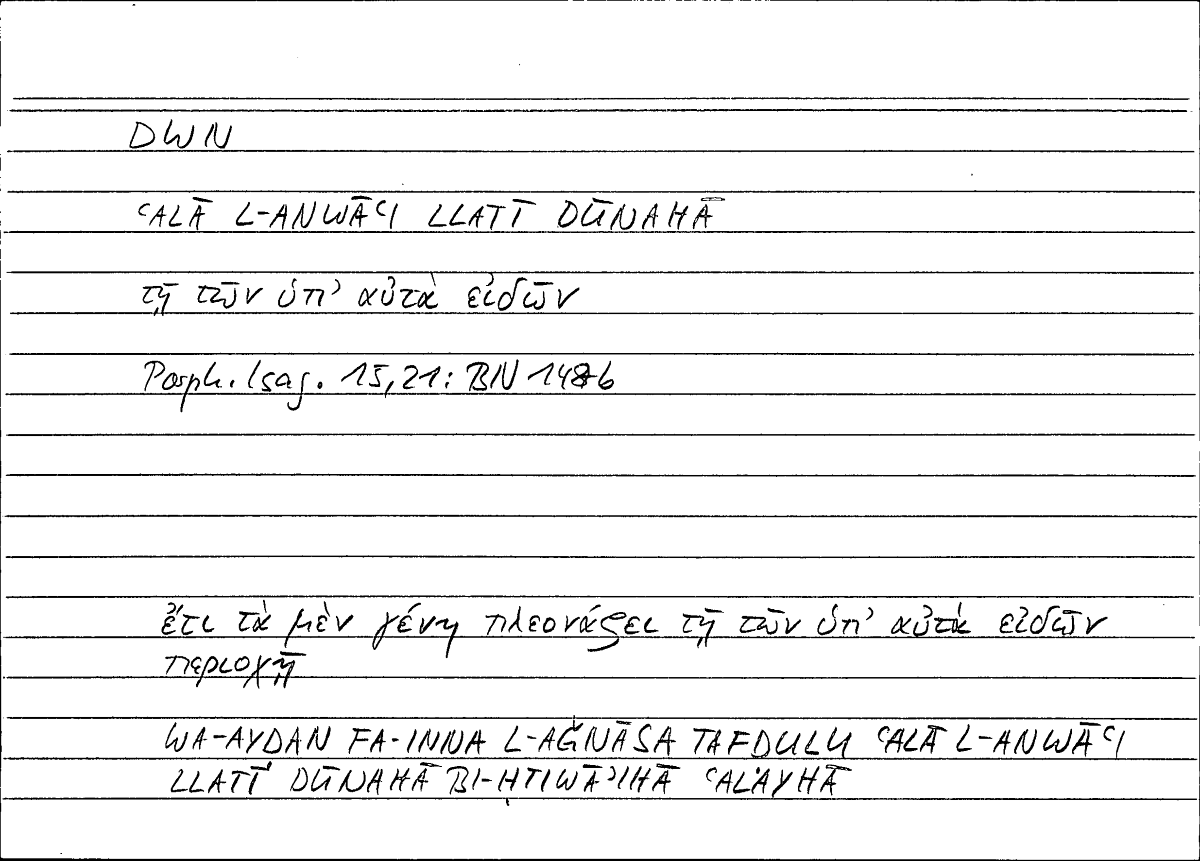 DWN
ʿALĀ L-ANWĀʿI LLATĪ DŪNAHĀ
τῇ τῶν ὑπ' αὐτὰ εἰδῶν
Porph. Isag. 15,21: BN 148b
ἔτι τὰ μὲν γένη πλεονάζει τῇ τῶν ὑπ' αὐτὰ εἰδῶν
περιοχῇ
WA-AYDAN FA-INNA L-AǦNĀSA TAFDULU ʿALĀ L-ANWĀʿI
LLATĪ DŪNAHĀ BI-ḤTIWĀʾIHĀ ʿALAYHĀ